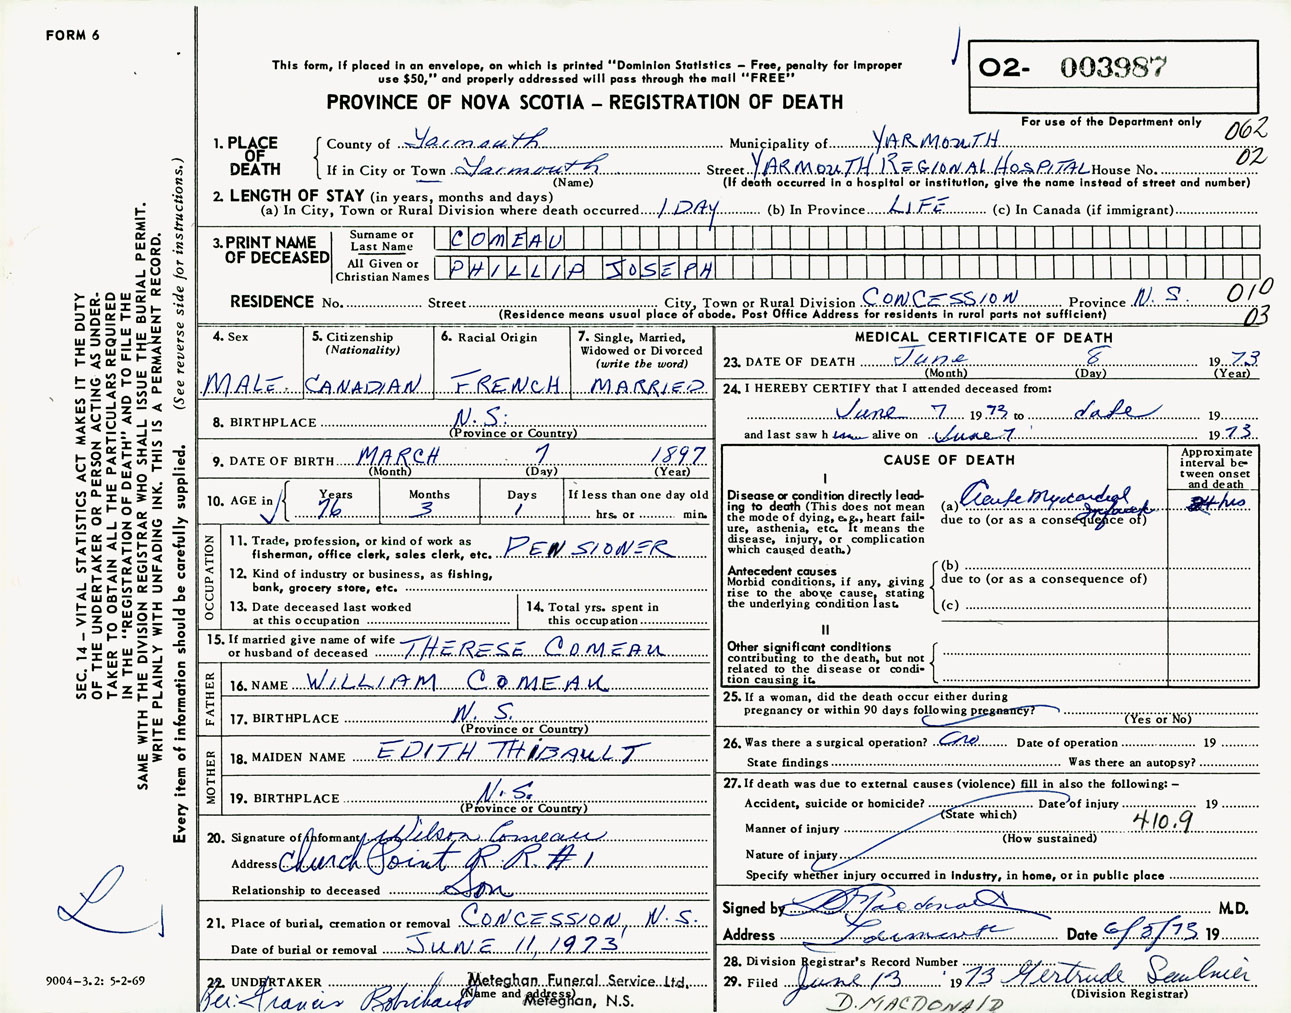 FORM 6
This form, if placed in an envelope, on which is printed "Dominion Statistics – Free, penalty for improper
use $50," and properly addressed will pass through the mail "FREE"
PROVINCE OF NOVA SCOTIA – REGISTRATION OF DEATH
02- 003987
For use of the Department only
062
02
1. PLACE OF DEATH
County of Yarmouth Municipality of YARMOUTH
If in City or Town Yarmouth Street YARMOUTH REGIONAL HOSPITAL House No.
(Name) (If death occurred in a hospital or institution, give the name instead of street and number)
2. LENGTH OF STAY (in years, months and days)
(a) In City, Town or Rural Division where death occurred 1 DAY (b) In Province LIFE (c) In Canada (if immigrant)
3. PRINT NAME OF DECEASED
Surname or Last Name COMEAU
All Given or Christian Names PHILLIP JOSEPH
RESIDENCE No. Street City, Town or Rural Division CONCESSION Province N.S. 010
(Residence means usual place of abode. Post Office Address for residents in rural parts not sufficient) 03
4. Sex MALE.
5. Citizenship (Nationality) CANADIAN
6. Racial Origin FRENCH
7. Single, Married, Widowed or Divorced (write the word) MARRIED
8. BIRTHPLACE N.S.
(Province or Country)
9. DATE OF BIRTH MARCH 7 1897
(Month) (Day) (Year)
10. AGE in Years 76 Months 3 Days 1 If less than one day old
hrs. or min.
OCCUPATION
11. Trade, profession, or kind of work as
fisherman, office clerk, sales clerk, etc. PENSIONER
12. Kind of industry or business, as fishing,
bank, grocery store, etc.
13. Date deceased last worked
at this occupation
14. Total yrs. spent in
this occupation
15. If married give name of wife
or husband of deceased THERESE COMEAU
FATHER
16. NAME WILLIAM COMEAU
17. BIRTHPLACE N.S.
(Province or Country)
MOTHER
18. MAIDEN NAME EDITH THIBAULT
19. BIRTHPLACE N.S.
(Province or Country)
20. Signature of Informant Wilson Comeau
Address Church Point R.R. #1
Relationship to deceased Son
21. Place of burial, cremation or removal CONCESSION, N.S.
Date of burial or removal JUNE 11, 1973
22. UNDERTAKER Meteghan Funeral Service Ltd.
(Name and address)
Per: Francis Robichaud Meteghan, N.S.
MEDICAL CERTIFICATE OF DEATH
23. DATE OF DEATH June 8 1973
(Month) (Day) (Year)
24. I HEREBY CERTIFY that I attended deceased from:
June 7 1973 to date 19
and last saw him alive on June 7 1973
CAUSE OF DEATH
Approximate interval between onset and death
I
Disease or condition directly lead-
ing to death (This does not mean
the mode of dying, e.g., heart fail-
ure, asthenia, etc. It means the
disease, injury, or complication
which caused death.)
(a) Acute Myocardial Infarct 24 hrs
due to (or as a consequence of)
Antecedent causes
Morbid conditions, if any, giving
rise to the above cause, stating
the underlying condition last.
(b)
due to (or as a consequence of)
(c)
II
Other significant conditions
contributing to the death, but not
related to the disease or condi-
tion causing it.
25. If a woman, did the death occur either during
pregnancy or within 90 days following pregnancy?
(Yes or No)
26. Was there a surgical operation? no Date of operation 19
State findings Was there an autopsy?
27. If death was due to external causes (violence) fill in also the following: –
Accident, suicide or homicide? Date of injury 19
(State which)
Manner of injury 410.9
(How sustained)
Nature of injury
Specify whether injury occurred in industry, in home, or in public place
Signed by D MacDonald M.D.
Address Yarmouth Date 6/8/73 19
28. Division Registrar's Record Number
29. Filed June 13 1973 Gertrude Saulnier
(Division Registrar)
D. MACDONALD
SEC. 14 – VITAL STATISTICS ACT MAKES IT THE DUTY
OF THE UNDERTAKER OR PERSON ACTING AS UNDER-
TAKER TO OBTAIN ALL THE PARTICULARS REQUIRED
IN THE "REGISTRATION OF DEATH" AND TO FILE THE
SAME WITH THE DIVISION REGISTRAR WHO SHALL ISSUE THE BURIAL PERMIT.
WRITE PLAINLY WITH UNFADING INK. THIS IS A PERMANENT RECORD.
Every item of information should be carefully supplied. (See reverse side for instructions.)
9004-3.2: 5-2-69